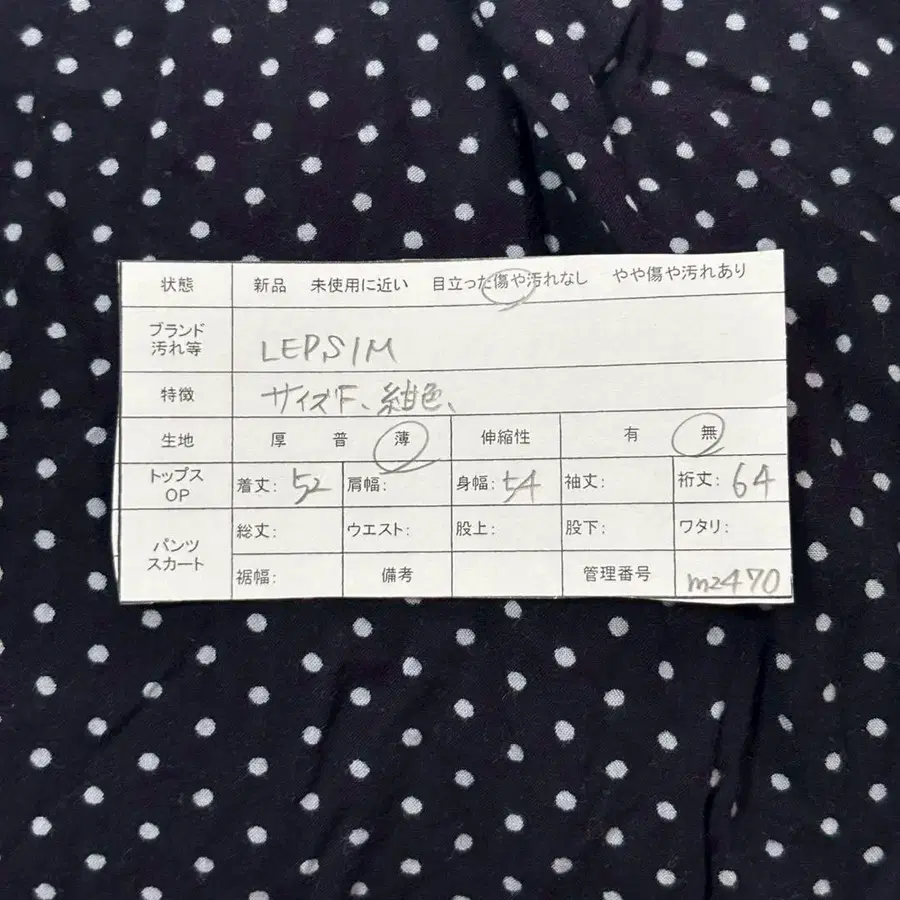 状態 新品 未使用に近い 目立った傷や汚れなし やや傷や汚れあり
ブランド
汚れ等 LEPSIM
特徴 サイズF、紺色、
生地 厚 普 薄 伸縮性 有 無
トップス
OP 着丈: 52 肩幅: 身幅: 54 袖丈: 裄丈: 64
パンツ
スカート 総丈: ウエスト: 股上: 股下: ワタリ:
裾幅: 備考 管理番号 m2470